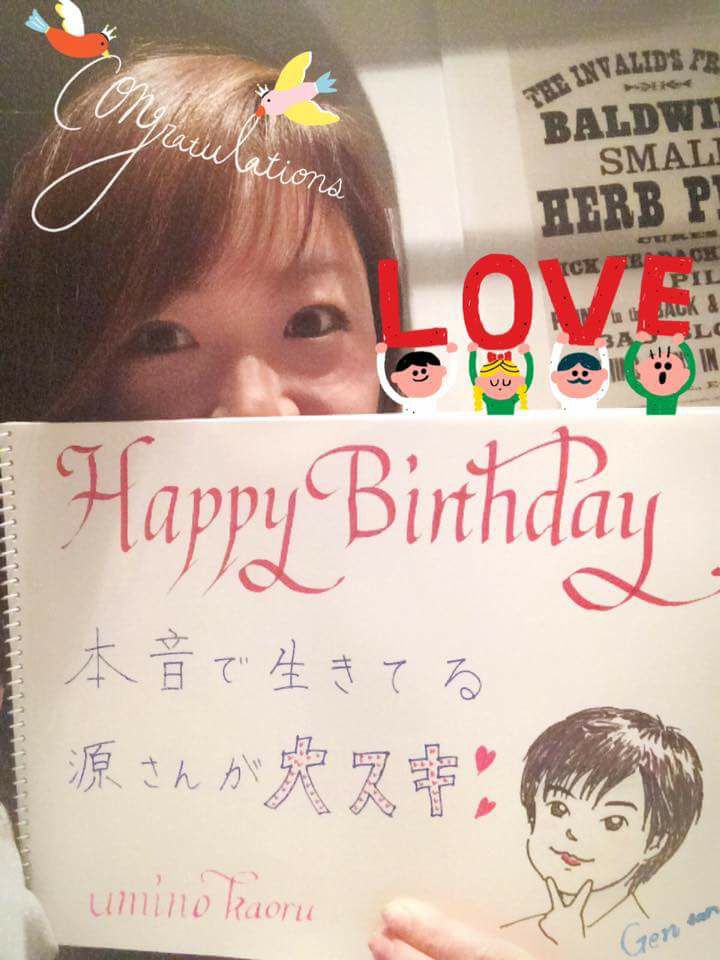 Congratulations
THE INVALID'S
BALDWI
SMAL
HERB P
CURES
LOVE
Happy Birthday
本音で生きてる
源さんが大スキ
umino kaoru
Gen san